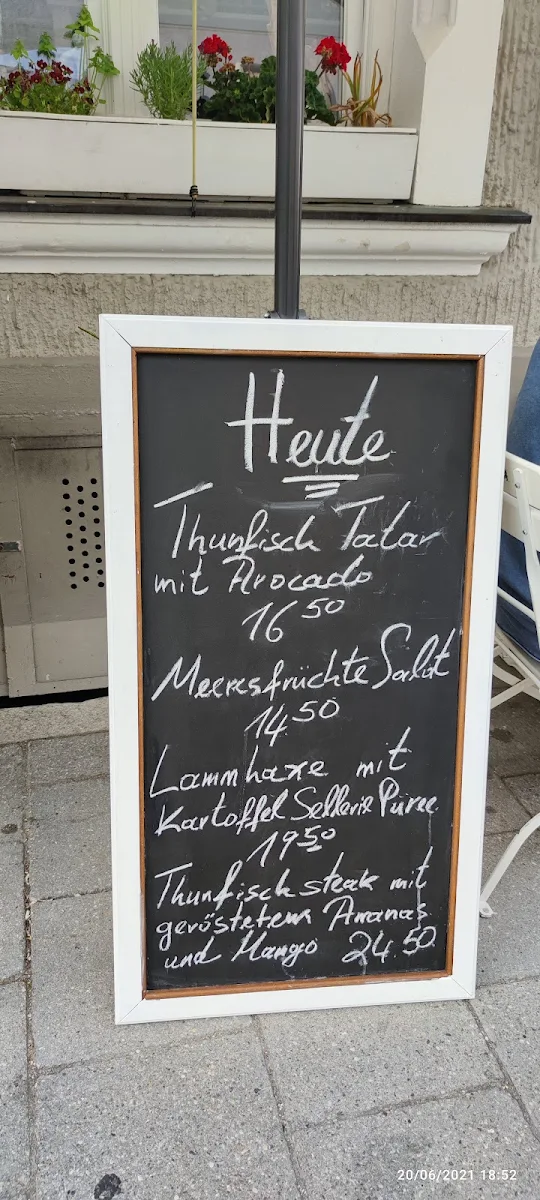 Heute
Thunfisch Tatar
mit Avocado
16 50
Meeresfrüchte Salat
14 50
Lammhaxe mit
Kartoffel Sellerie Püree
19 50
Thunfischsteak mit
geröstetem Ananas
und Mango 24.50
20/06/2021 18:52